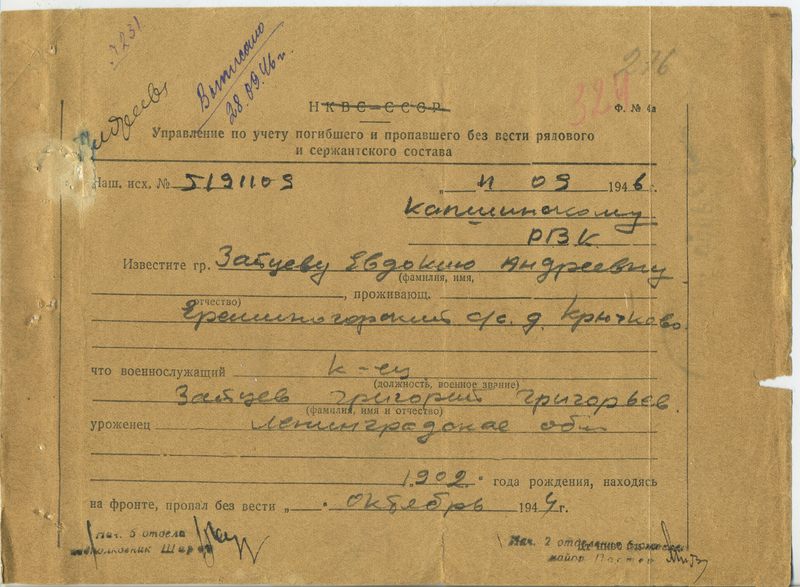 7231
Выписано
28.09.46 г.
276
324
НКВС СССР
Ф. № 4а
Управление по учету погибшего и пропавшего без вести рядового
и сержантского состава
Наш. исх. № 5191109
„ 11 09 1946 г.
Капшинскому
РВК
Известите гр. Зайцеву Евдокию Андреевну
(фамилия, имя,
, проживающ.
отчество)
Еремогорский с/с. д. Крючково.
что военнослужащий к-ец
(должность, военное звание)
Зайцев Григорий Григорьев.
(фамилия, имя и отчество)
уроженец Ленинградская обл
1902. года рождения, находясь
на фронте, пропал без вести „ . октябрь 1944 г.
Нач. 5 отдела
Нач. 2 отделения
подполковник
майор